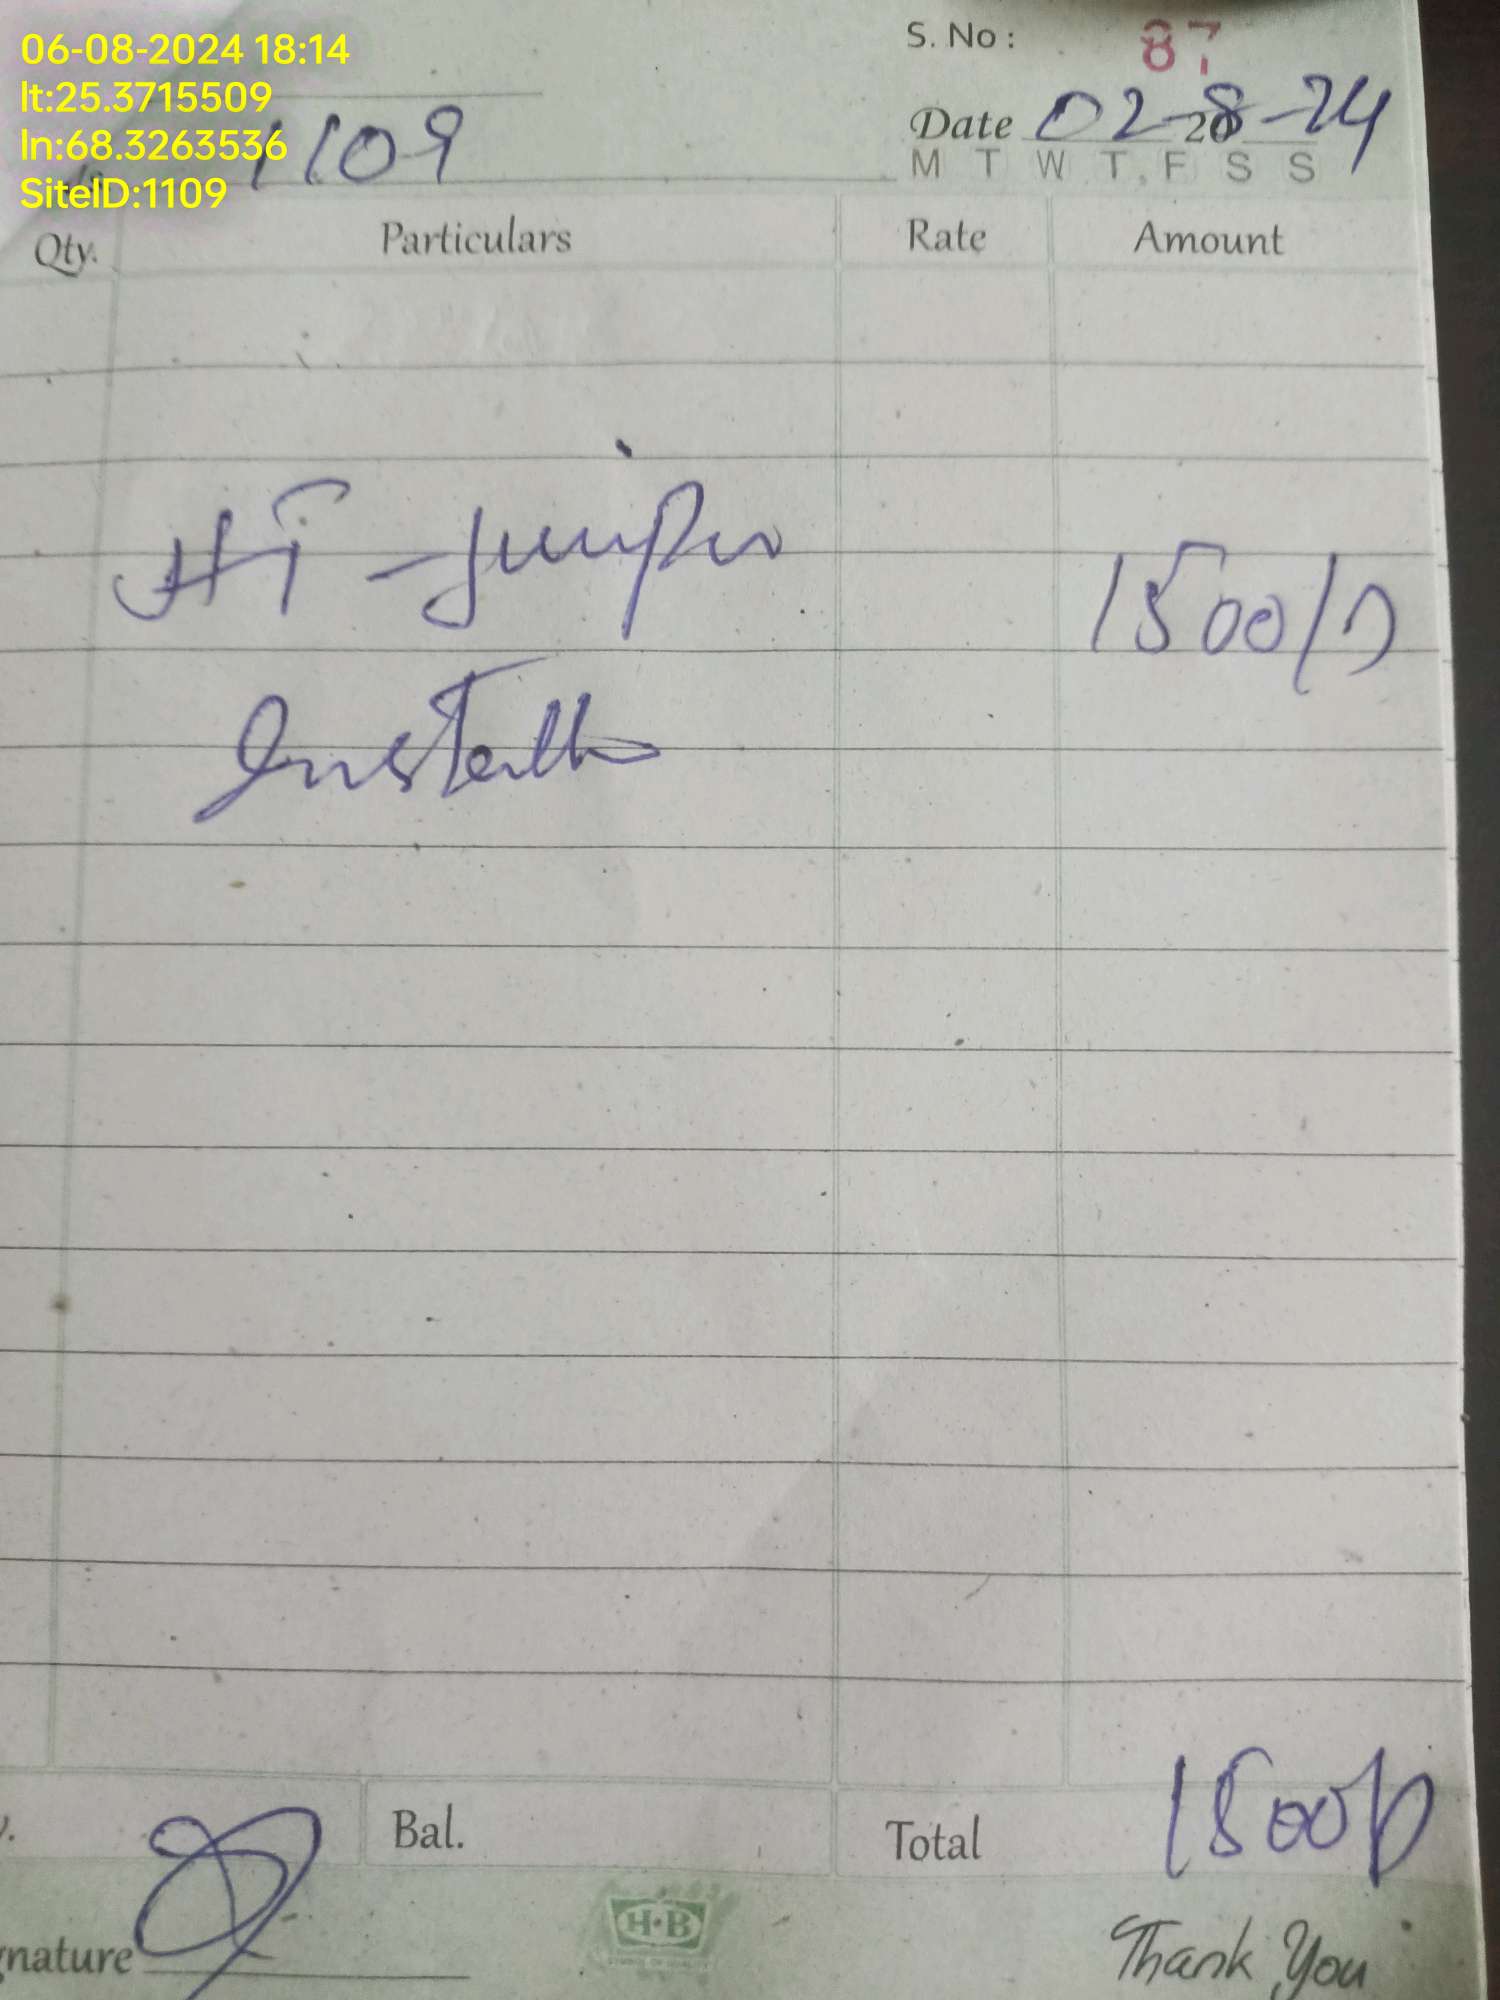 06-08-2024 18:14
lt:25.3715509
ln:68.3263536
SiteID:1109
S. No : 87
Date 02-8-24 20
M T W T F S S
1109
Qty. Particulars Rate Amount
HT - 1500/
Total 1500/
Bal.
gnature
H·B
Thank You